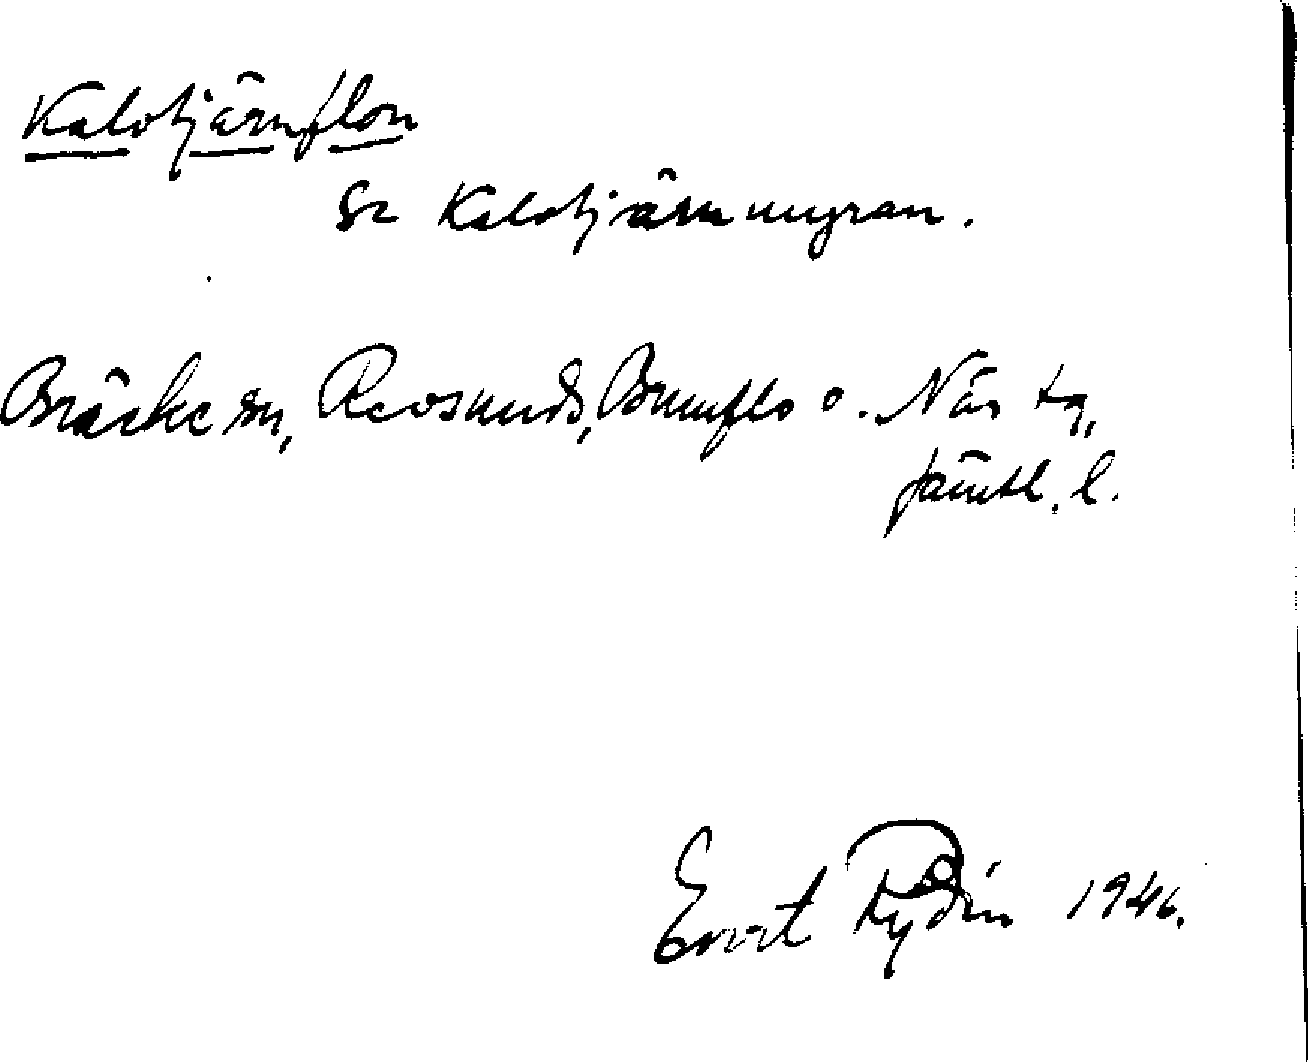 Kalotjärnflon
Se Kalotjärnmyran.
Bräcke sn, Revsunds, Brunflo o. Näs tg,
Jämtl. l.
Evert Rydin 1946.